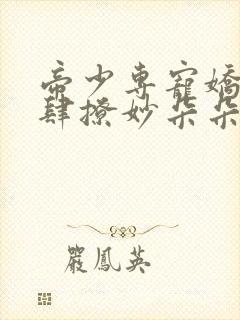 帝少專寵嬌
肆撩妙朵朵
嚴鳳英